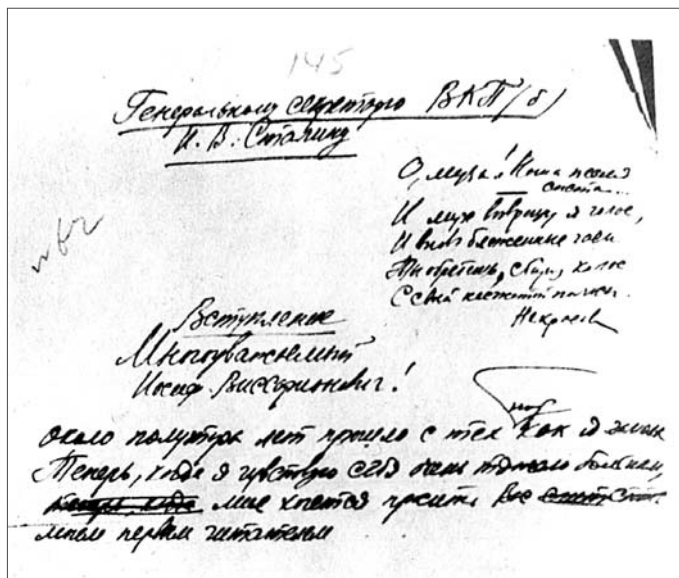 145
Генеральному секретарю ВКП/б/
И. В. Сталину
О, муза! Наша песня
спета...
И музе возвращу я голос,
И вновь блаженные часы
Ты обретешь, сбирая колос
С своей несжатой полосы.
Некрасов
Вступление
Многоуважаемый
Иосиф Виссарионович!
пор
около полутора лет прошло с тех как я замолк
Теперь, когда я чувствую себя очень тяжело больным,
мне хочется просить Вас стать
моим первым читателем